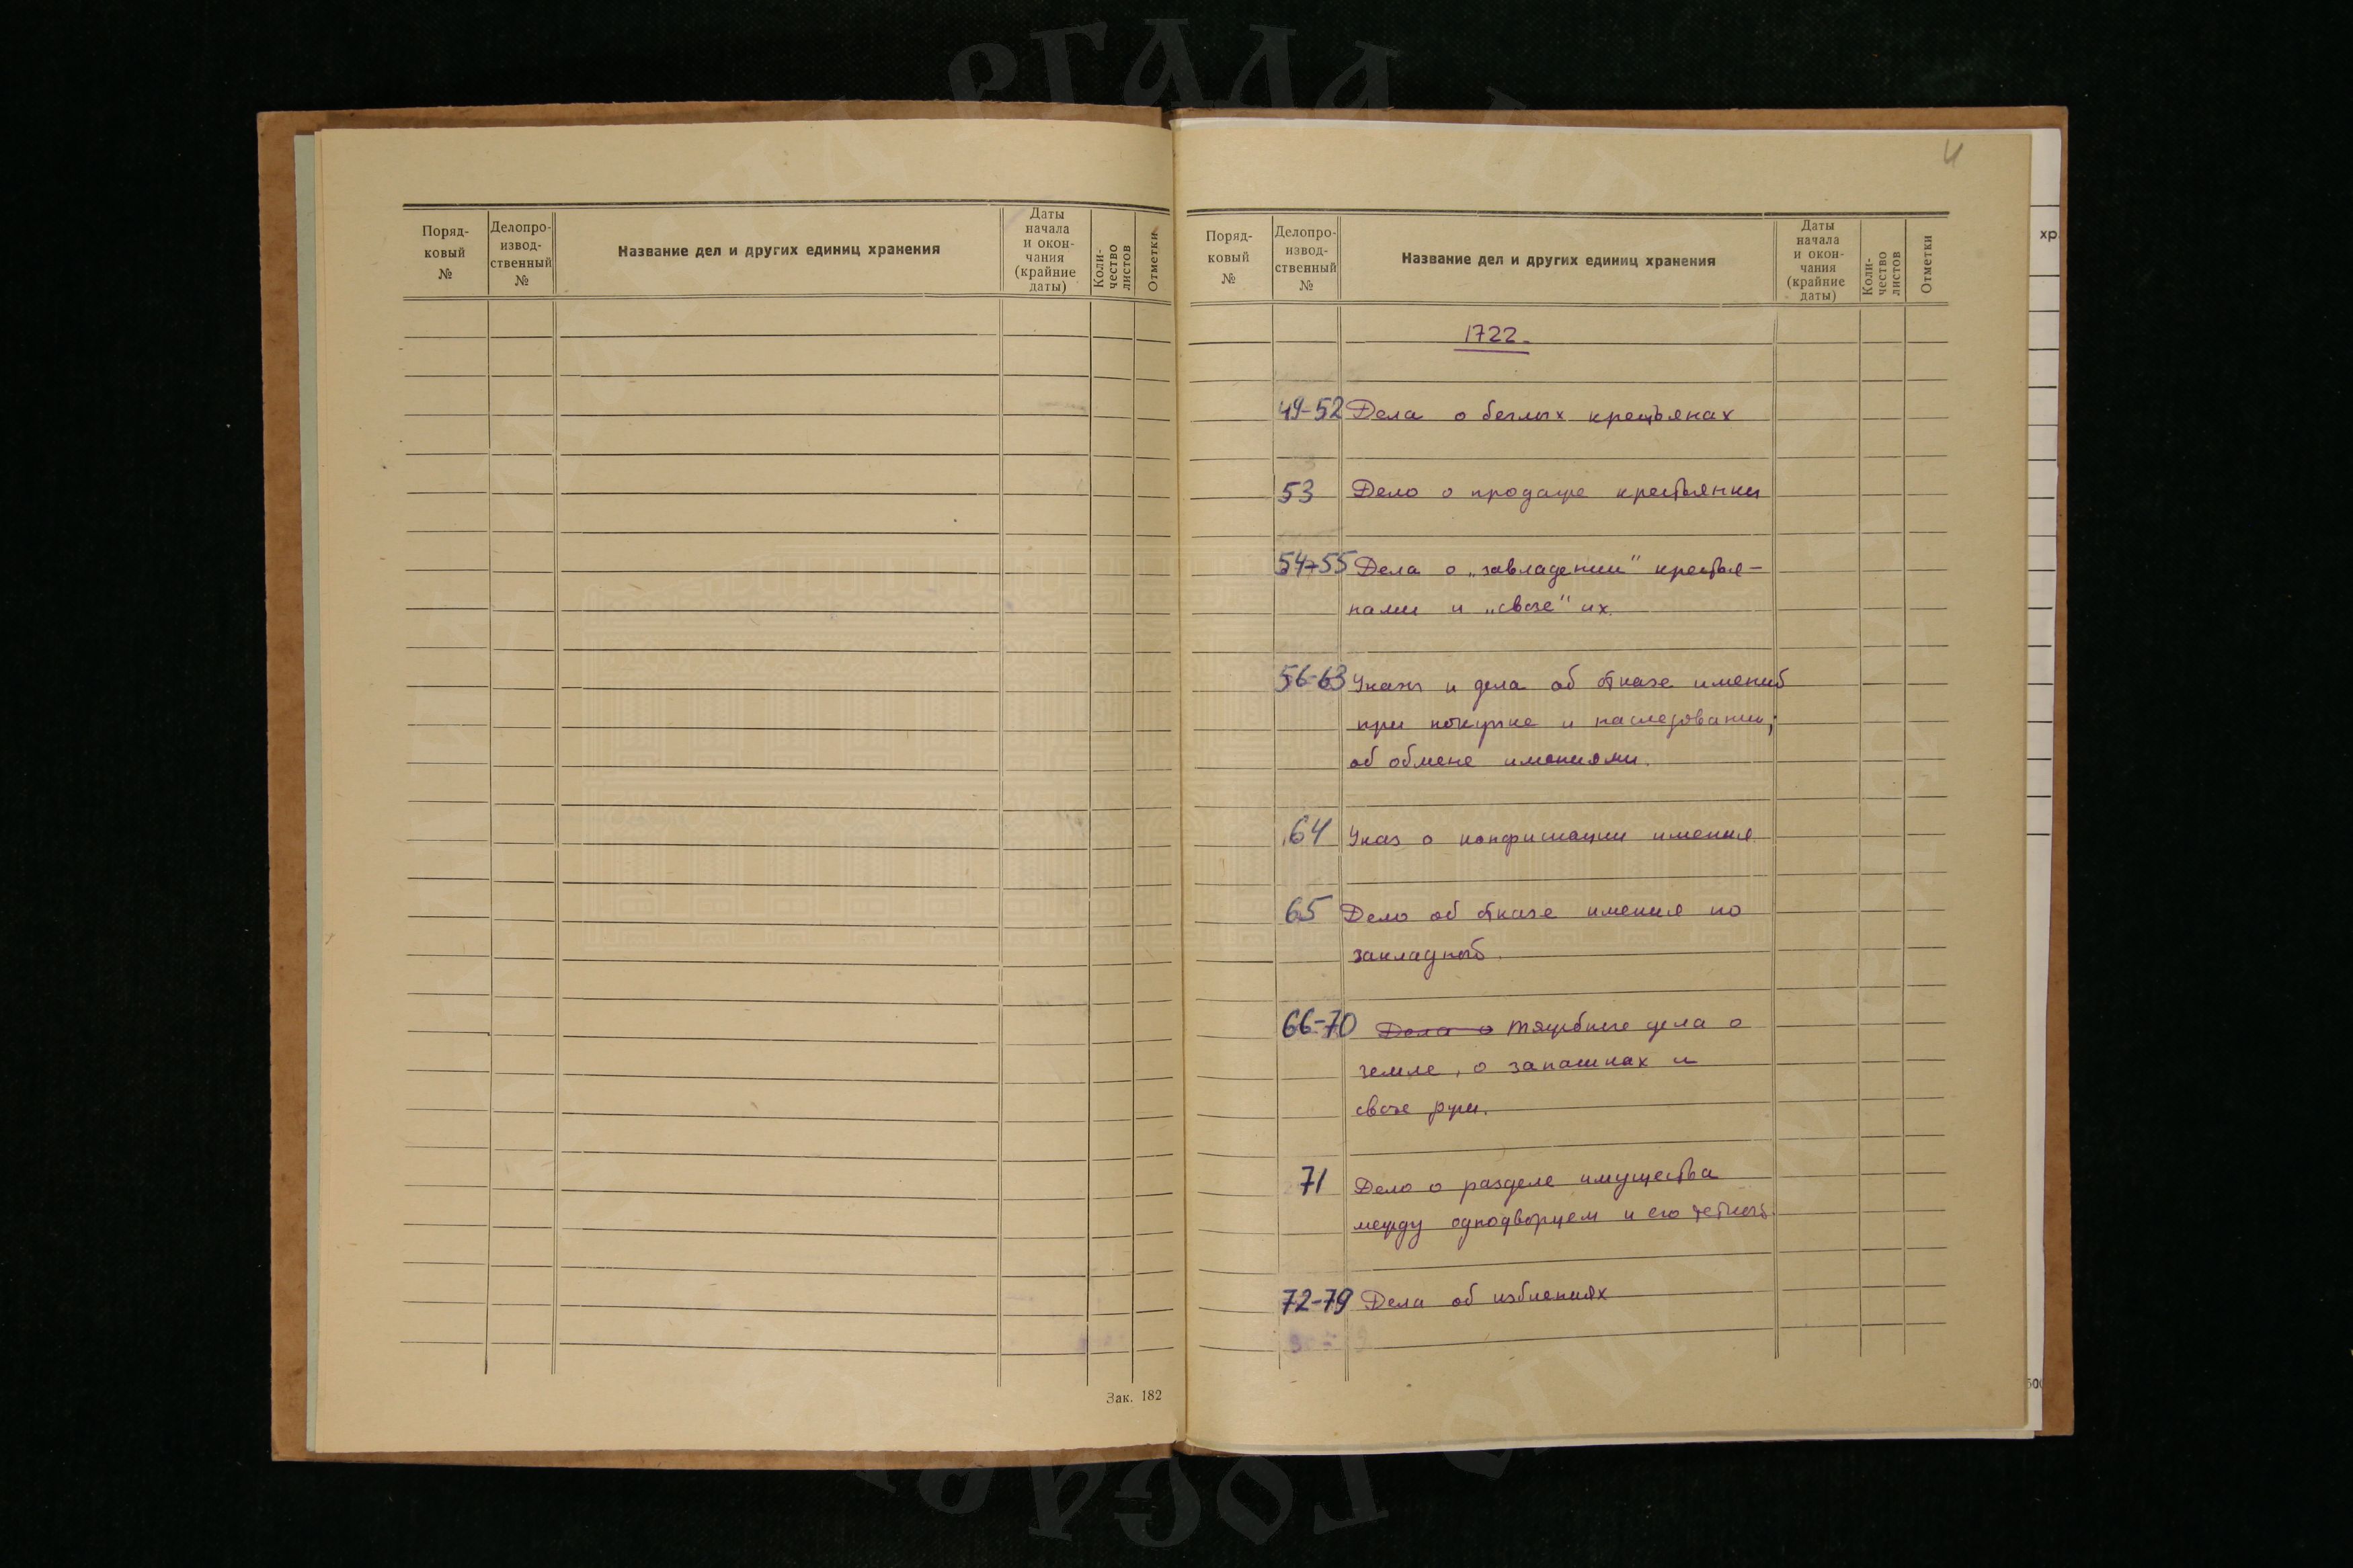 Поряд-
ковый
№
Делопро-
извод-
ственный
№
Название дел и других единиц хранения
Даты
начала
и окон-
чания
(крайние
даты)
Коли-
чество
листов
Отметки
Зак. 182
4
Поряд-
ковый
№
Делопро-
извод-
ственный
№
Название дел и других единиц хранения
Даты
начала
и окон-
чания
(крайние
даты)
Коли-
чество
листов
Отметки
1722.
49-52 Дела о беглых крестьянах
53 Дело о продаже крестьянки
54-55 Дела о „завладении" крестья-
нами и „свозе" их.
56-63 Указы и дела об отказе имений
при покупке и наследовании,
об обмене имениями.
64 Указ о конфискации имения
65 Дело об отказе имения по
закладной.
66-70 Дела о Тяжебные дела о
земле, о запашках и
свозе ржи.
71 Дело о разделе имущества
между однодворцем и его
72-79 Дела об избиениях
хр